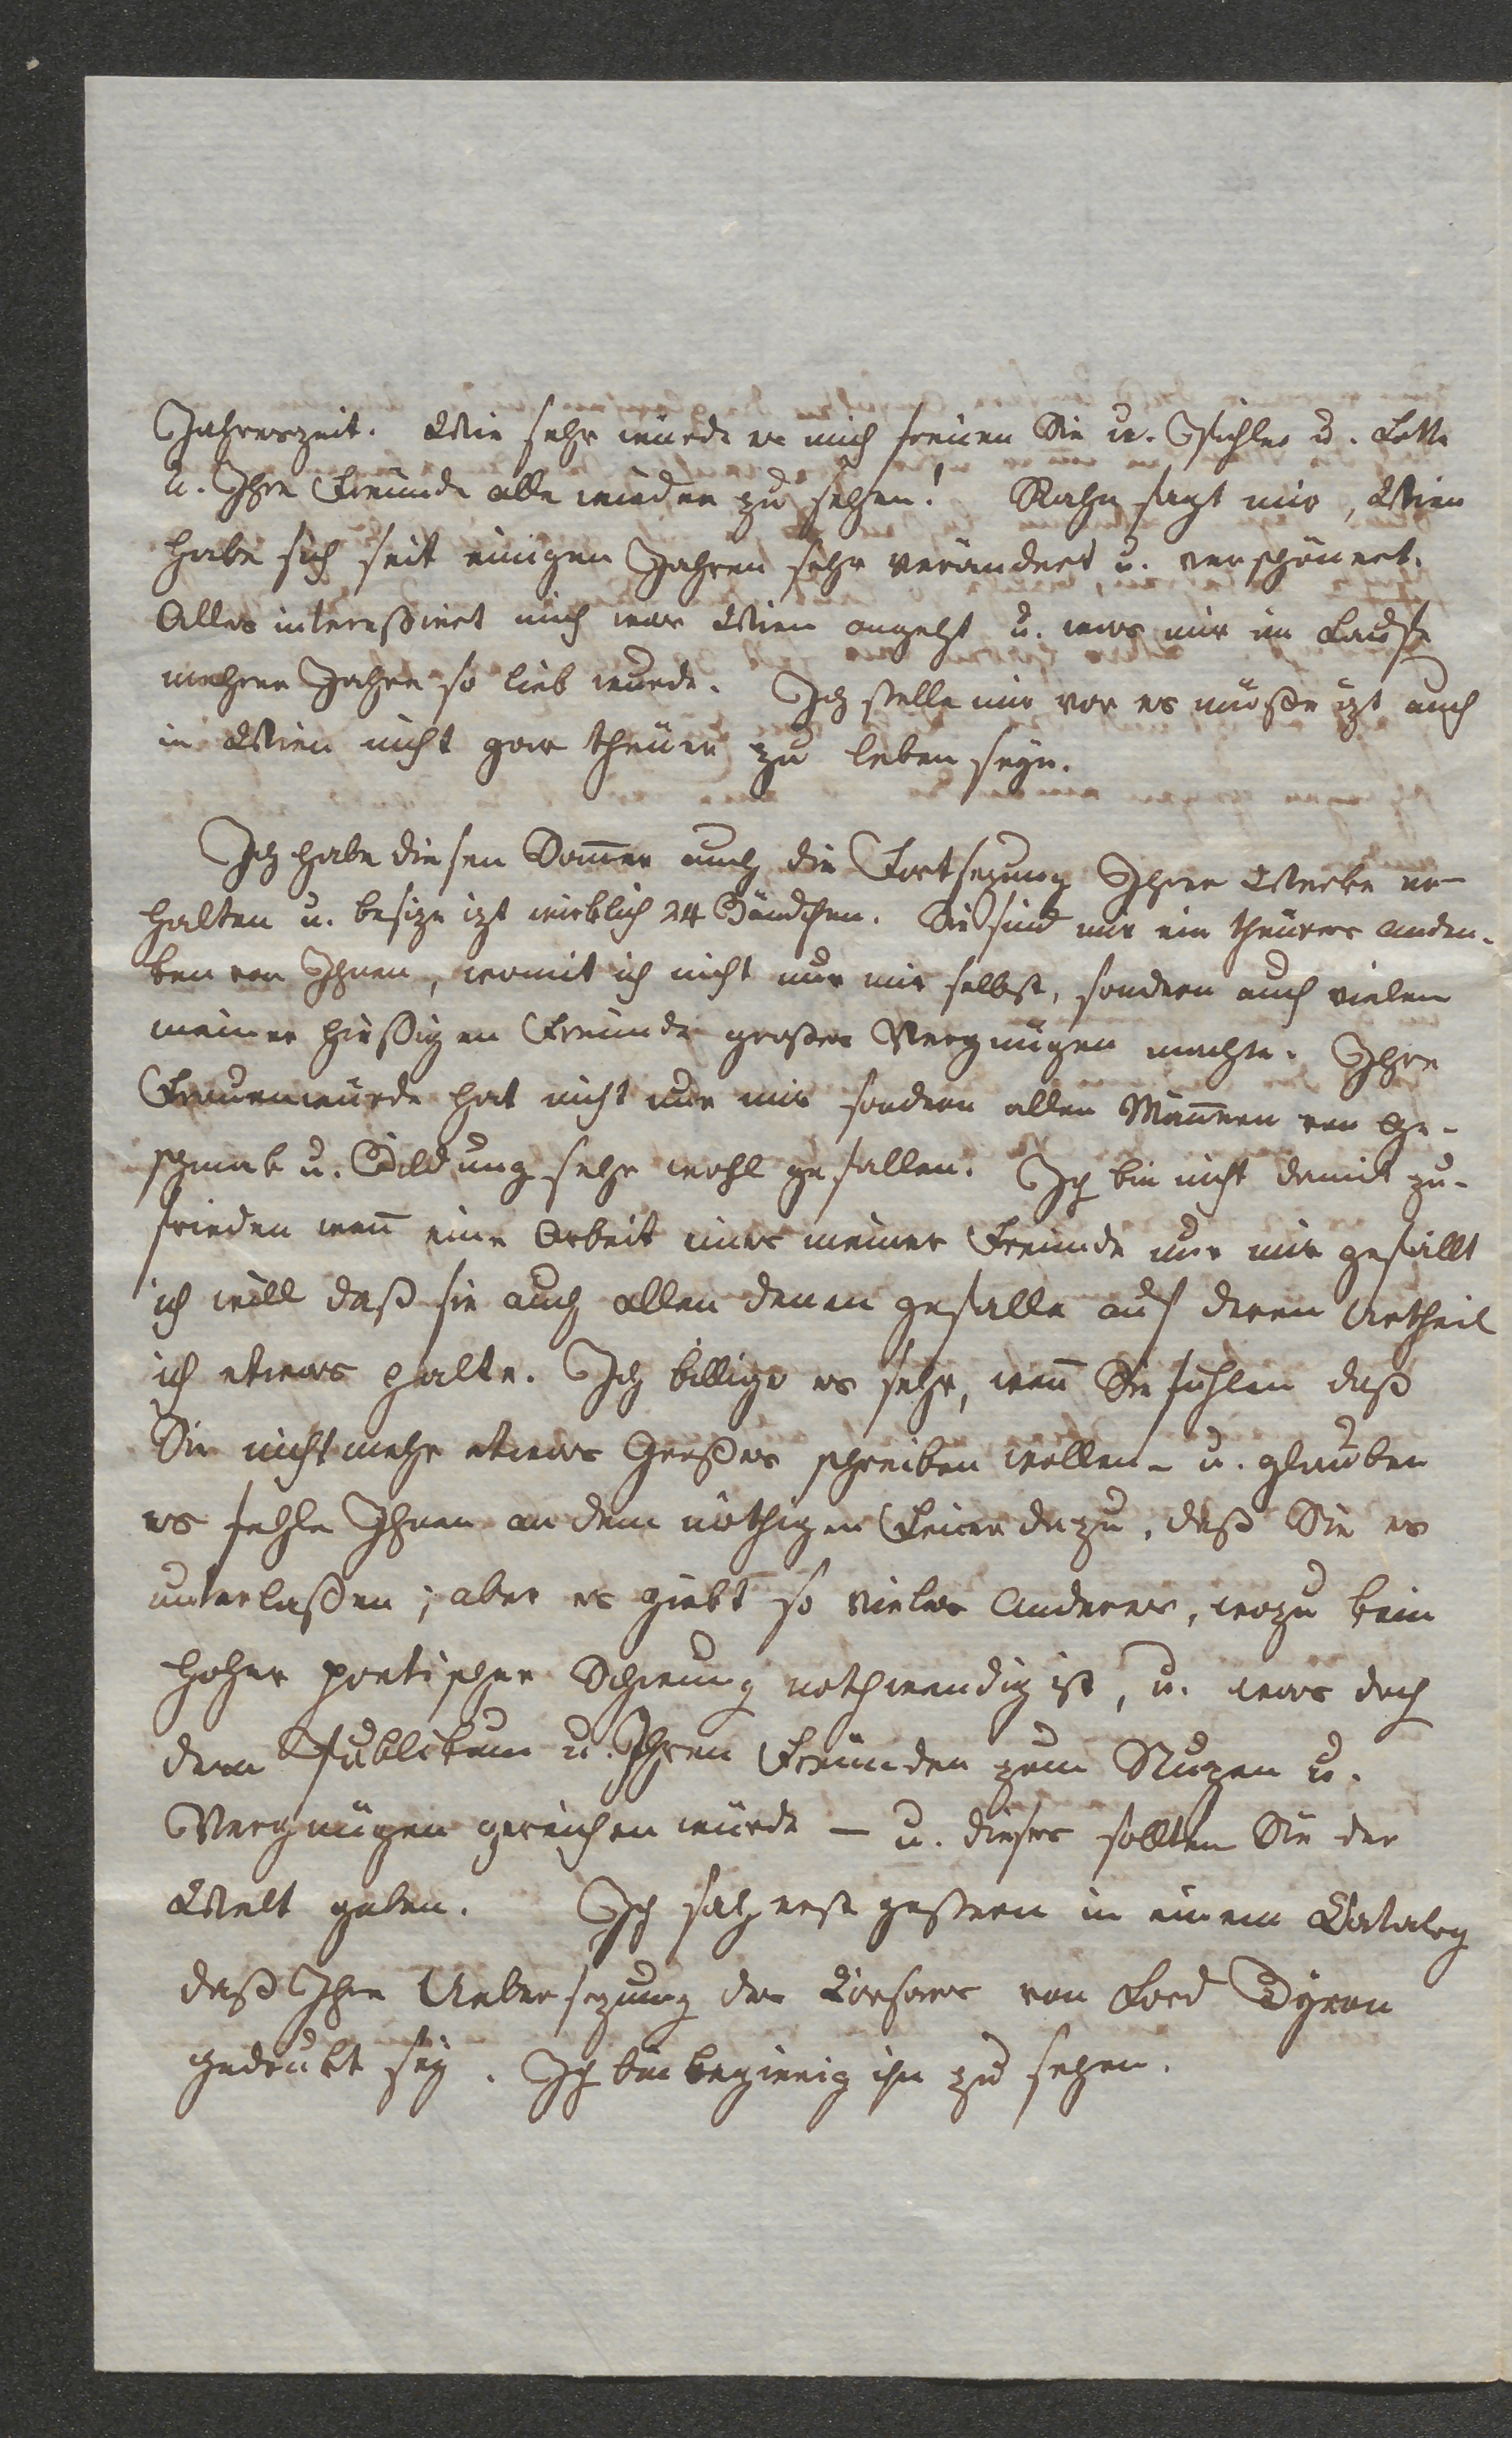 Jahreszeit. Wie sehr würde es mich freuen Sie u. Pichler u. Lotte
u. Ihre Freunde alle wieder zu sehen! Rahn sagt mir, Wien
habe sich seit einigen Jahren sehr verändert u. verschönert.
Alles intereßirt mich was Wien angeht u. was mir im Laufe
mehrer Jahre so lieb wurde. Ich stelle mir vor es müße izt auch
in Wien nicht gar theuer zu leben seyn.
Ich habe diesen Som̄er auch die Fortsezung Ihrer Werke er-
halten u. besize izt wirklich 24 Bändchen. Sie sind mir ein theures Anden-
ken von Ihnen, womit ich nicht nur mir selbst, sondern auch vielen
meiner hießigen Freunde großes Vergnügen mache. Ihre
Frauenwürde hat nicht nur mir sondern allen Män̄ern von Ge-
schmak u. Bildung sehr wohl gefallen. Ich bin nicht damit zu-
frieden wen̄ eine Arbeit eines meiner Freunde nur mir gefällt
ich will daß sie auch allen denen gefalle auf deren Urtheil
ich etwas halte. Ich billige es sehr, wen̄ Sie fühlen daß
Sie nicht mehr etwas Großes schreiben wollen – u. glauben
es fehle Ihnen an dem nöthigen Feuer dazu, daß Sie es
unterlaßen; aber es giebt so vieles Anderes, wozu kein
hoher poetischer Schwung nothwendig ist, u. was doch
dem Publikum u. Ihren Freunden zum Nuzen u.
Vergnügen gereichen würde – u. dieses sollten Sie der
Welt geben. Ich sah erst gestern in einem Katalog
daß Ihre Uebersezung des Korsars von Lord Byron
gedrukt sey. Ich bin begierig ihn zu sehen.